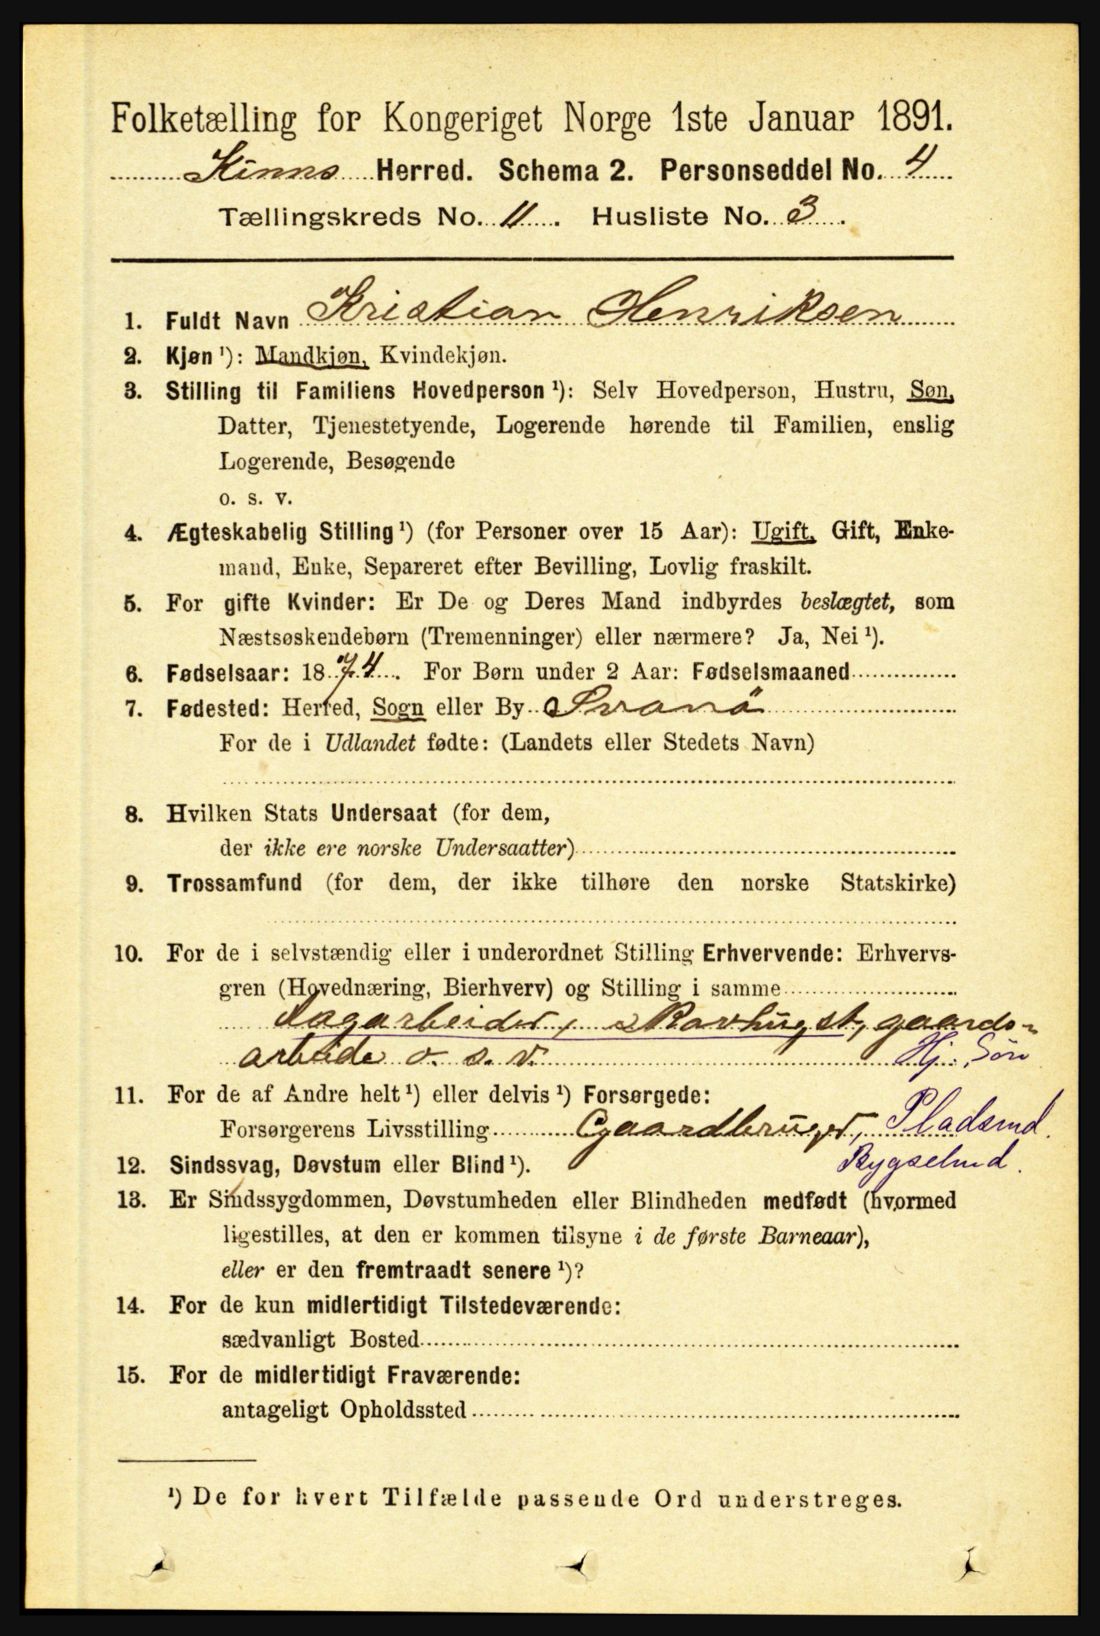 Folketælling for Kongeriget Norge 1ste Januar 1891.
Kinns Herred. Schema 2. Personseddel No. 4
Tællingskreds No. 11. Husliste No. 3.
1. Fuldt Navn Kristian Henriksen
2. Kjøn ¹): Mandkjøn, Kvindekjøn.
3. Stilling til Familiens Hovedperson ¹): Selv Hovedperson, Hustru, Søn,
Datter, Tjenestetyende, Logerende hørende til Familien, enslig
Logerende, Besøgende
o. s. v.
4. Ægteskabelig Stilling ¹) (for Personer over 15 Aar): Ugift, Gift, Enke-
mand, Enke, Separeret efter Bevilling, Lovlig fraskilt.
5. For gifte Kvinder: Er De og Deres Mand indbyrdes beslægtet, som
Næstsøskendebørn (Tremenninger) eller nærmere? Ja, Nei ¹).
6. Fødselsaar: 1874. For Børn under 2 Aar: Fødselsmaaned
7. Fødested: Herred, Sogn eller By Svanö
For de i Udlandet fødte: (Landets eller Stedets Navn)
8. Hvilken Stats Undersaat (for dem,
der ikke ere norske Undersaatter)
9. Trossamfund (for dem, der ikke tilhøre den norske Statskirke)
10. For de i selvstændig eller i underordnet Stilling Erhvervende: Erhvervs-
gren (Hovednæring, Bierhverv) og Stilling i samme
Sagarbeider, Skovhugst, gaards-
arbeide o. s. v. Hj. Sön
11. For de af Andre helt ¹) eller delvis ¹) Forsørgede:
Forsørgerens Livsstilling Gaardbruger, Pladsmd.
12. Sindssvag, Døvstum eller Blind ¹). Bygselmd.
13. Er Sindssygdommen, Døvstumheden eller Blindheden medfødt (hvormed
ligestilles, at den er kommen tilsyne i de første Barneaar),
eller er den fremtraadt senere ¹)?
14. For de kun midlertidigt Tilstedeværende:
sædvanligt Bosted
15. For de midlertidigt Fraværende:
antageligt Opholdssted
¹) De for hvert Tilfælde passende Ord understreges.